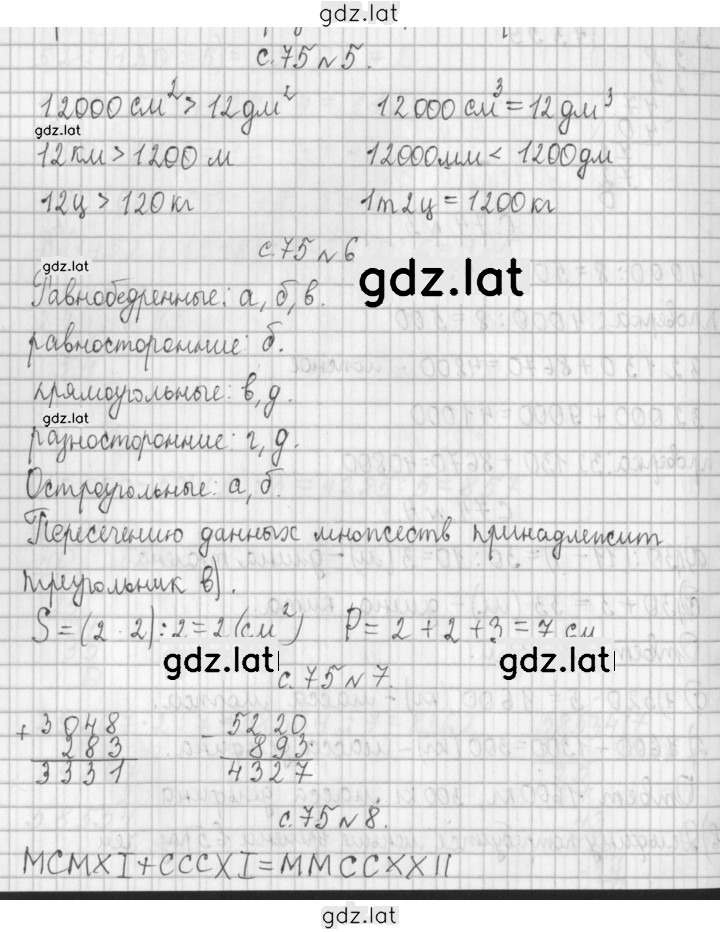 gdz.lat
с.75 №5.
12000 см² > 12 дм² 12000 см³ = 12 дм³
gdz.lat
12 км > 1200 м 12000 мм < 1200 дм
12 ц > 120 кг 1 т 2 ц = 1200 кг
с.75 №6
gdz.lat
gdz.lat
Равнобедренные: а, б, в.
равносторонние: б.
прямоугольные: в, д.
gdz.lat
разносторонние: г, д.
Остроугольные: а, б.
Пересечению данных множеств принадлежит
треугольник в).
S = (2 · 2) : 2 = 2 (см²) P = 2 + 2 + 3 = 7 см
gdz.lat gdz.lat
с.75 №7.
+ 3048 - 5220
283 893
3331 4327
с.75 №8.
MCMXI + CCCXI = MMCCXXII
gdz.lat